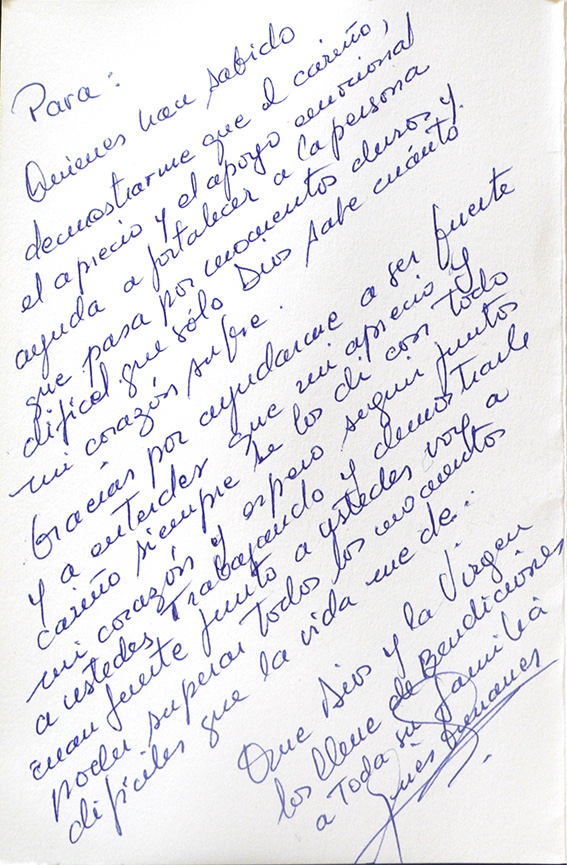 Para:
Quienes han sabido
demostrarme que el cariño,
el aprecio y el apoyo emocional
ayuda a fortalecer a la persona
que pasa por momentos duros y
dificil que sólo Dios sabe cuánto
mi corazón sufre.
Gracias por ayudarme a ser fuerte
y a entender que mi aprecio y
cariño siempre se los di con todo
mi corazón y espero seguir juntos
a ustedes Trabajando y demostrarle
cuan fuerte junto a ustedes voy a
poder superar Todos los momentos
dificiles que la vida me de..
Que Dios y la Virgen
los llene de Bendiciones
a Toda su familia
Inés